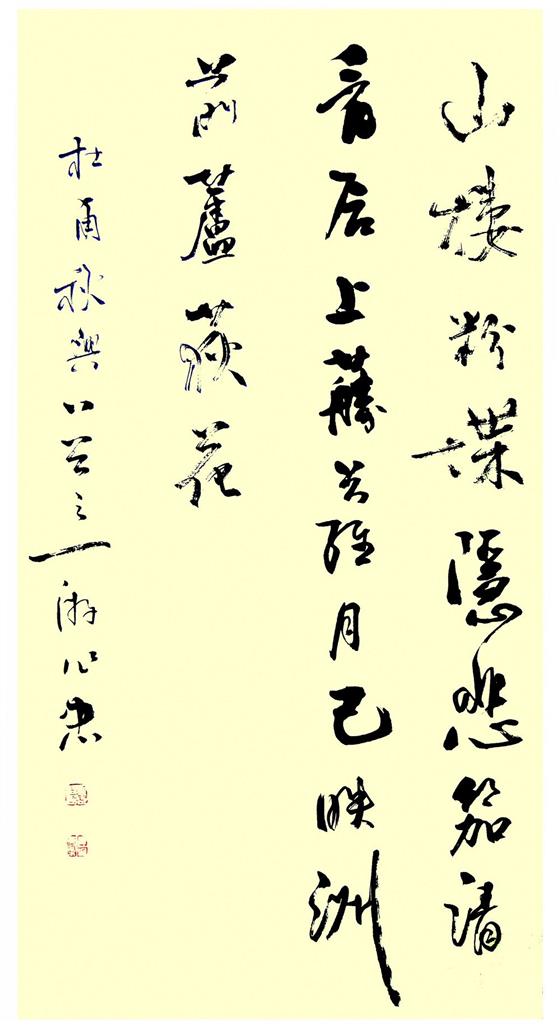 山樓粉堞隱悲笳請
看石上藤蘿月已映洲
前蘆荻花
杜甫秋興八首之一